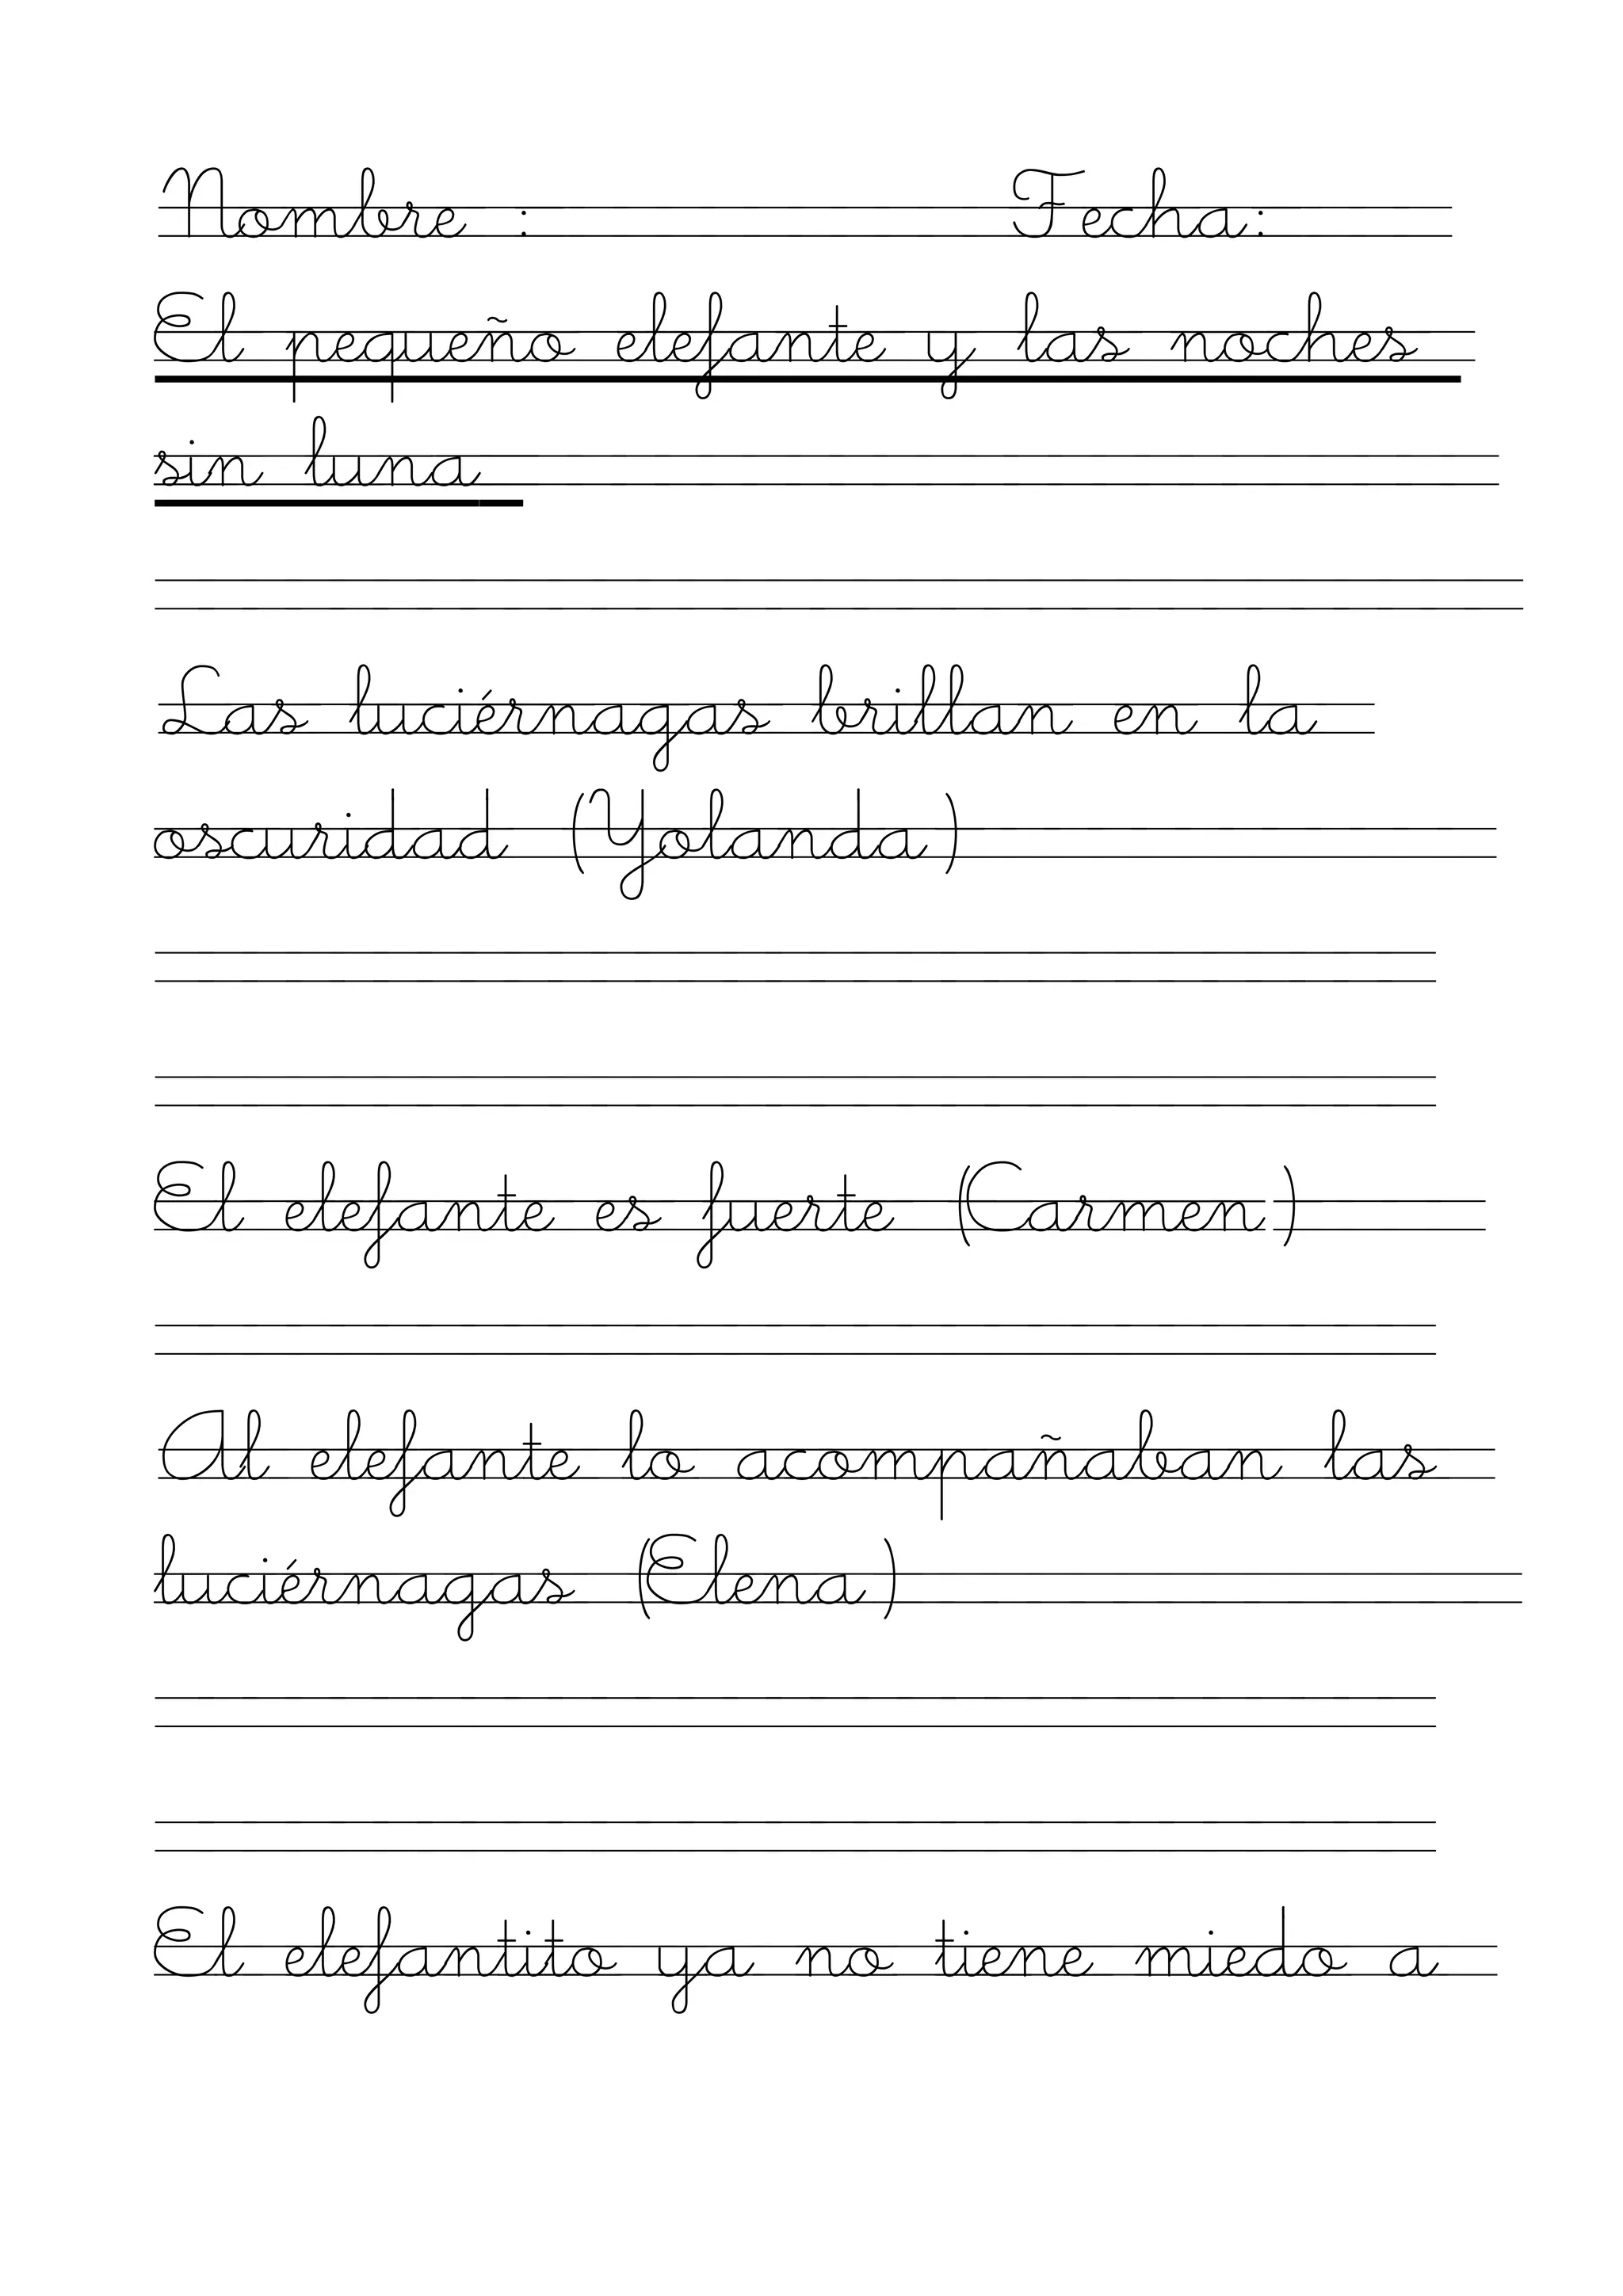 Nombre : Fecha:
El pequeño elefante y las noches
sin luna
Las luciérnagas brillan en la
oscuridad (Yolanda)
El elefante es fuerte (Carmen)
Al elefante lo acompañaban las
luciérnagas (Elena)
El elefantito ya no tiene miedo a